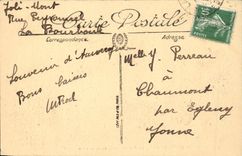 Joli-Mont
Rue Peyronnel
La Bourboule
Carte Postale
Correspondance
Adresse
Souvenir d'Auvergne
Bons baisers
Melle Y. Perreau
à
Chaumont
par Egleny
Yonne